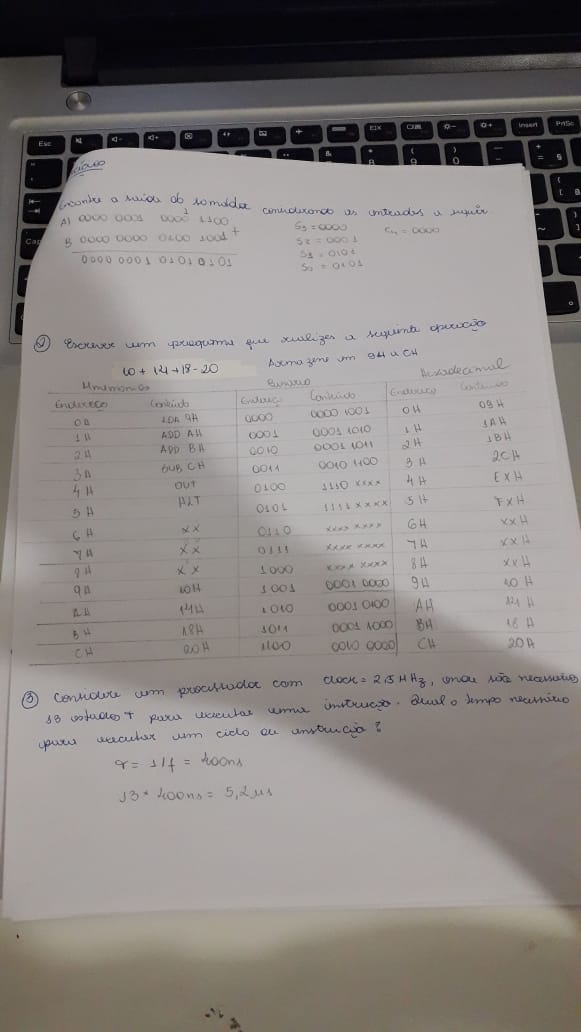 Esc
Insert
PrtSc
Encontre a saída do somador considerando as entradas a seguir
A) 0000 0001 0000 1100
S3 = 0000 C4 = 0000
B 0000 0000 0100 1001 +
S2 = 0001
0000 0001 0101 0101
S1 = 0101
S0 = 0101
2) Escrever um programa que realizes a seguinte operação
10 + 14 + 18 - 20 Armazene em 9H a CH
Mnemonicos Binario Hexadecimal
Endereço Conteúdo Endereço Conteúdo Endereço Conteudo
0H LDA 9H 0000 0000 1001 0H 09H
1H ADD AH 0001 0001 1010 1H 1AH
2H ADD BH 0010 0001 1011 2H 1BH
3H SUB CH 0011 0010 1100 3H 2CH
4H OUT 0100 1110 xxxx 4H EXH
5H HLT 0101 1111 xxxx 5H FXH
6H XX 0110 xxxx xxxx 6H XXH
7H XX 0111 xxxx xxxx 7H XXH
8H XX 1000 xxxx xxxx 8H XXH
9H 10H 1001 0001 0000 9H 10H
AH 14H 1010 0001 0100 AH 14H
BH 18H 1011 0001 1000 BH 18H
CH 20H 1100 0010 0000 CH 20H
3) Considere um processador com clock = 2,5 MHz, onde são necessários
13 estados T para executar uma instrução. Qual o tempo necessário
para executar um ciclo de instrução?
T = 1/f = 400ns
13 * 400ns = 5,2us